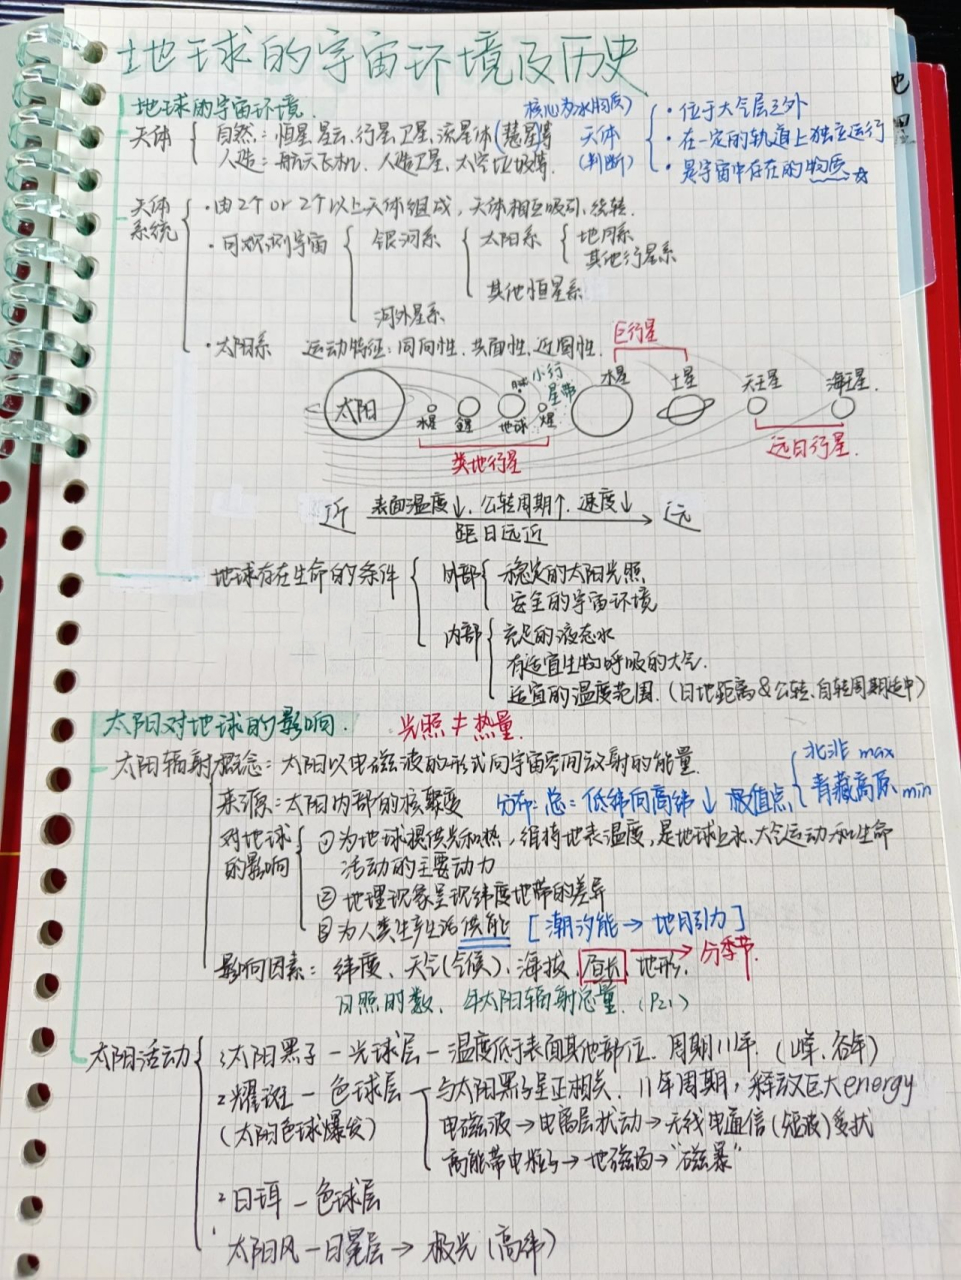 地球的宇宙环境及历史
地球的宇宙环境.
核心为水物质)
天体
自然:恒星.星云,行星.卫星.流星体(慧星)等
人造:航天飞机、人造卫星、太空垃圾等.
天体
(判断)
·位于大气层之外
·在一定的轨道上独立运行
·是宇宙中存在的物质☆
天体
系统
·由2个or2个以上天体组成,天体相互吸引、绕转.
·可观测宇宙
银河系
太阳系
地月系
其他行星系
其他恒星系
河外星系
·太阳系
运动特征:同向性.共面性.近圆性.
巨行星
太阳
水星
金星
地球
火星
小行
星带
木星
土星
天王星
海王星.
类地行星
远日行星.
近
表面温度↓.公转周期↑.速度↓
距日远近
远
地球存在生命的条件
外部
稳定的太阳光照
安全的宇宙环境
内部
充足的液态水
有适宜生物呼吸的大气.
适宜的温度范围.(日地距离&公转、自转周期适中)
太阳对地球的影响.
光照≠热量.
太阳辐射
概念:太阳以电磁波的形式向宇宙空间放射的能量.
北非 max
青藏高原 min
来源:太阳内部的核聚变
分布:总:低纬向高纬↓ 极值点
对地球
的影响
①为地球提供光和热,维持地表温度,是地球上水、大气运动和生命
活动的主要动力
②地理现象呈现纬度地带的差异
③为人类生产生活供能
[潮汐能→地月引力]
影响因素:纬度、天气(气候)、海拔、昼长、地形.
→分季节.
日照时数、年太阳辐射总量.(P21)
太阳活动
太阳黑子-光球层-温度低于表面其他部位.周期11年.(峰年、谷年)
耀斑-色球层
(太阳色球爆发)
与太阳黑子呈正相关.11年周期,释放巨大energy
电磁波→电离层扰动→无线电通信(短波)受扰
高能带电粒子→地磁场→"磁暴"
日珥-色球层
太阳风-日冕层→极光(高纬)